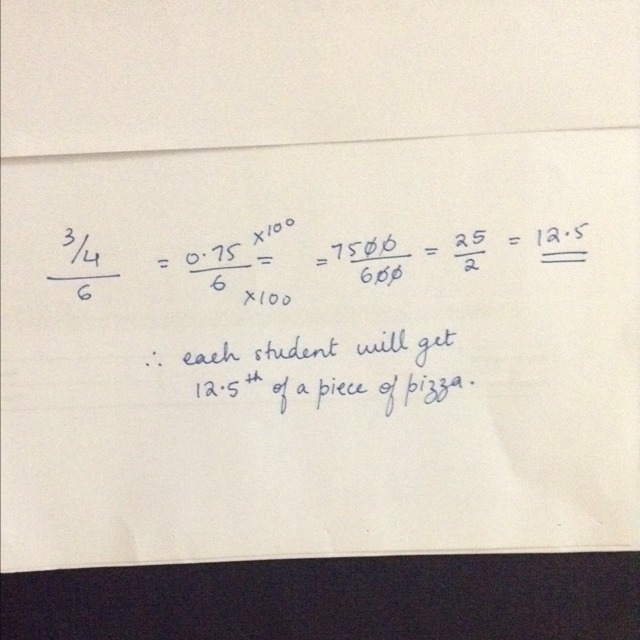 3/4 / 6 = 0.75 ×100 / 6 ×100 = = 7500 / 600 = 25 / 2 = 12.5
∴ each student will get
12.5th of a piece of pizza.